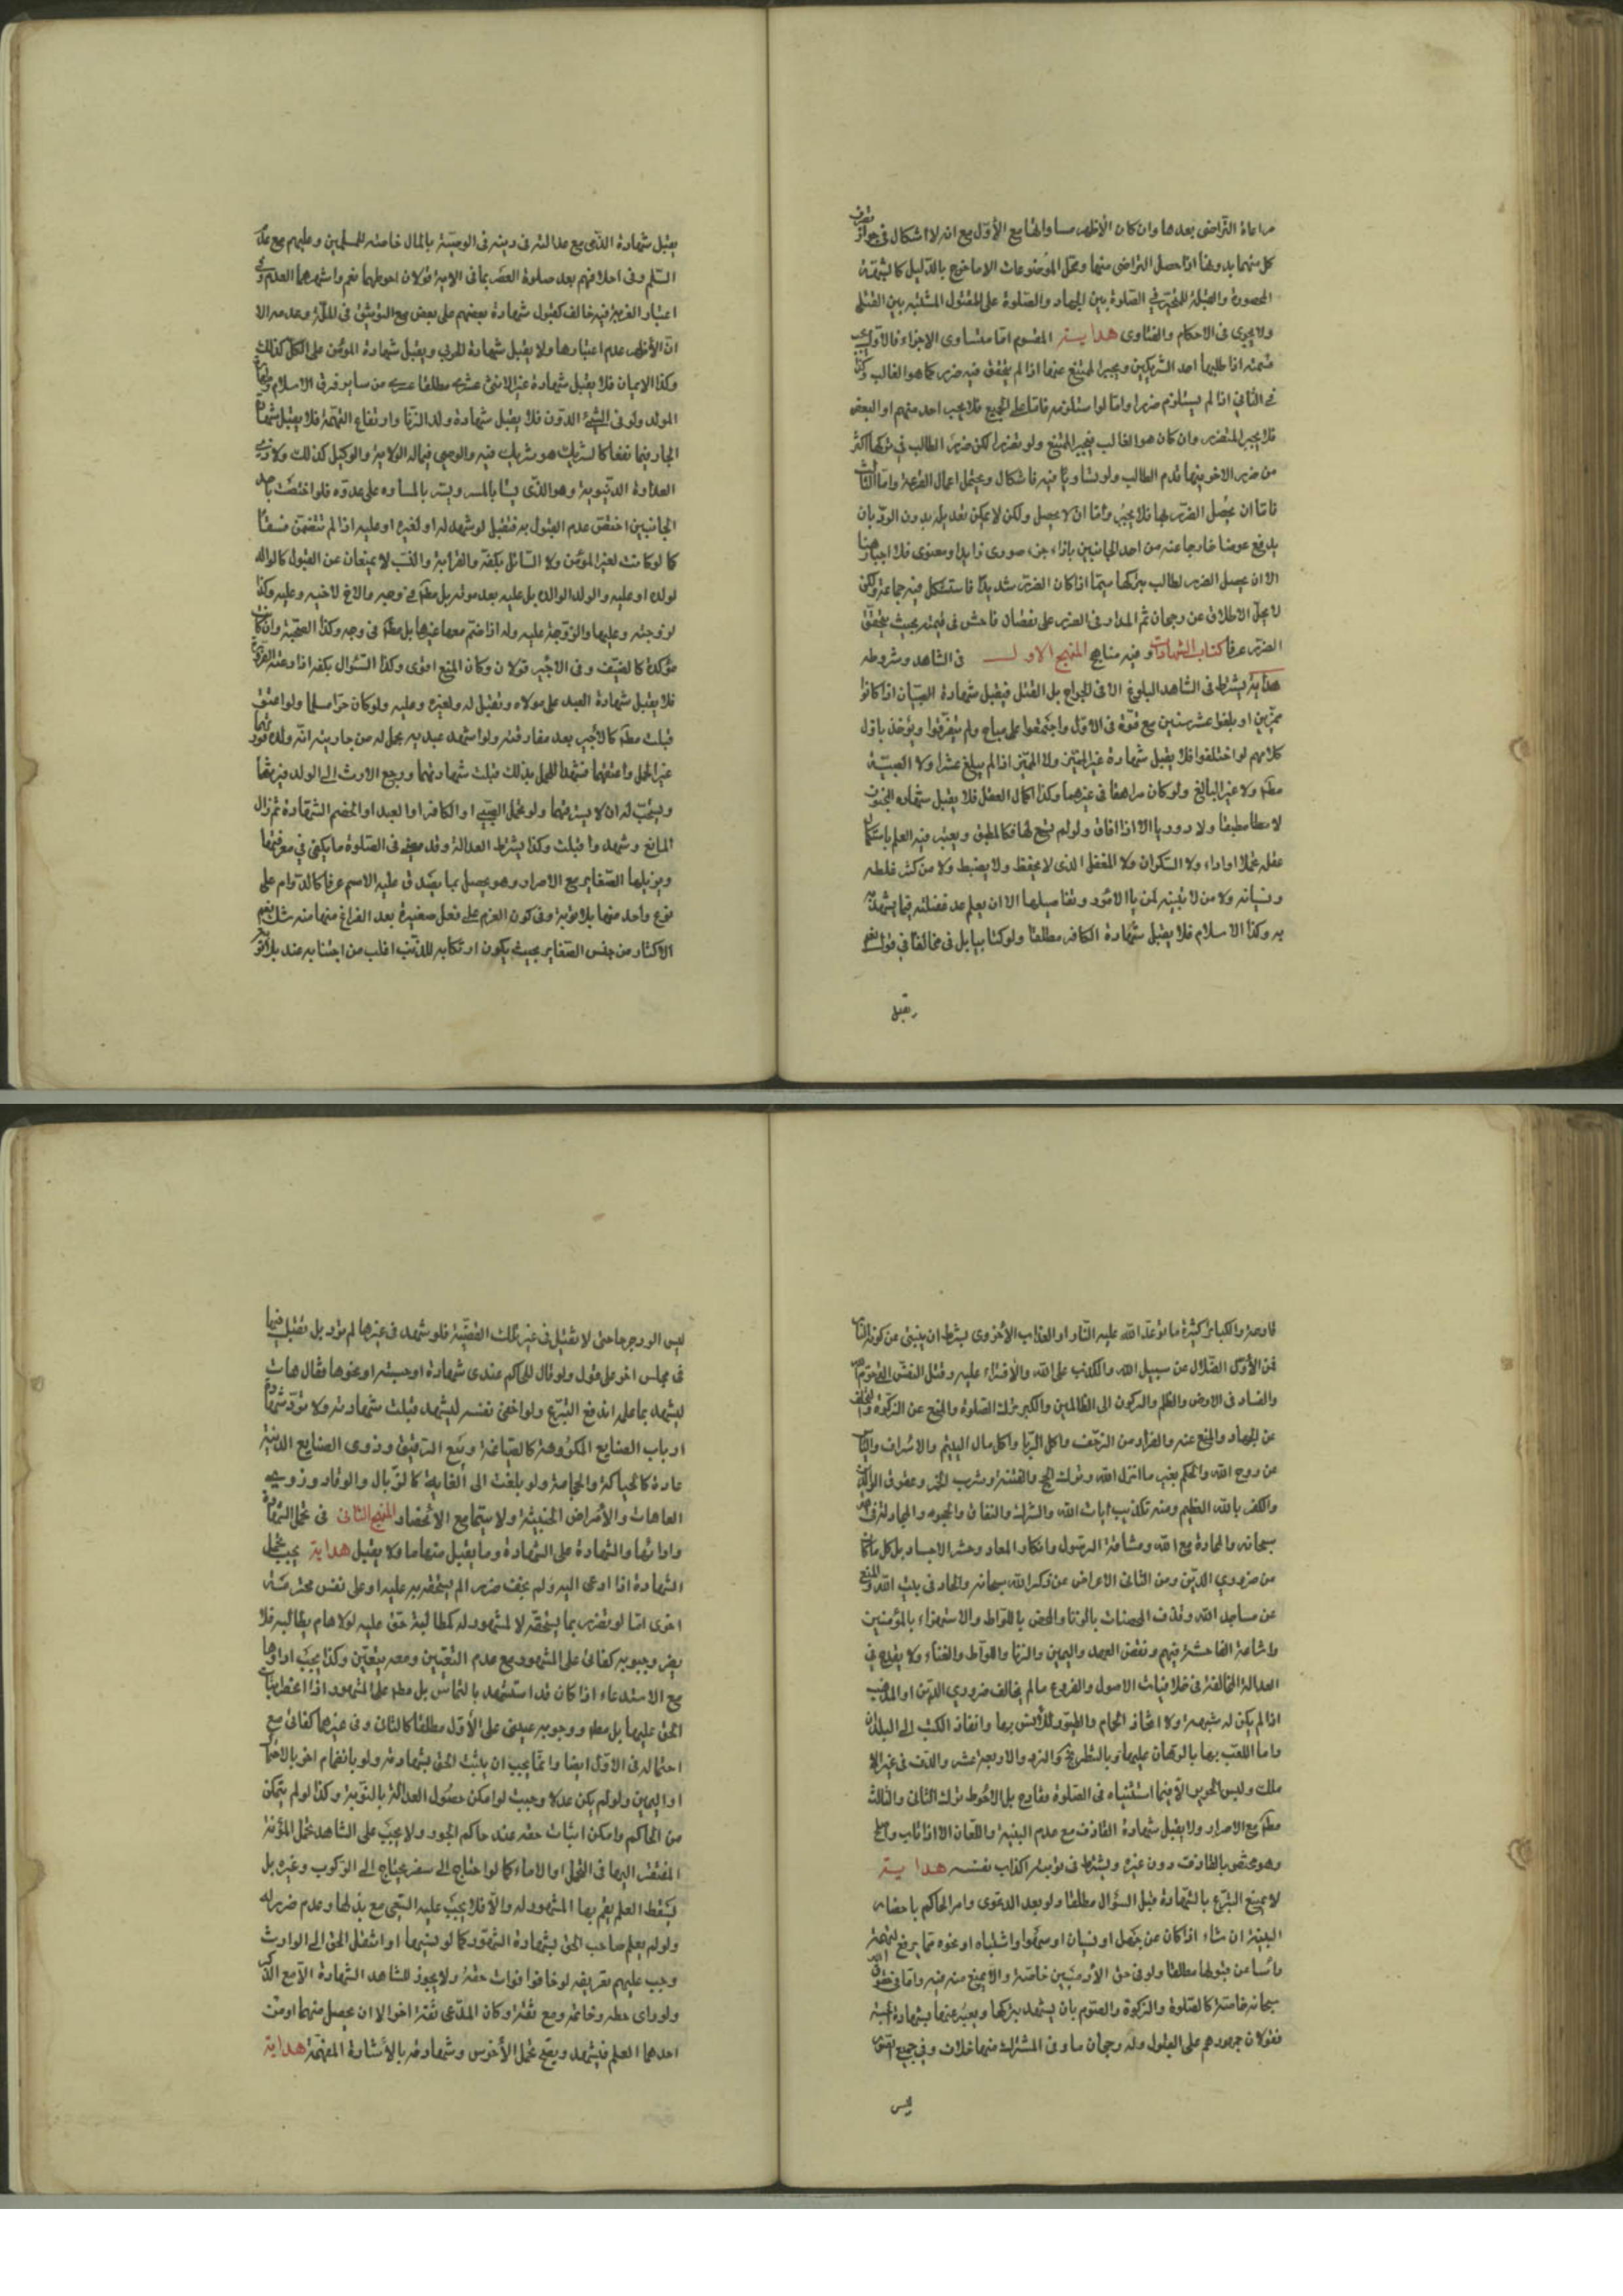 مراعاة التراضى بعدها وان كان الأظهر مساواتها مع الأوّل مع انه لا اشكال فى جواز تصرف
كل منهما بدونها اذا حصل التراضى منهما ومحل الموضوعات الا ما خرج بالدليل كالبهيمة
المحصورة والقبلة للمتحيّر فى الصلوة بين الجهاد والصلوة على المقتول المشتبه بين القتلى
ولا يجرى فى الاحكام والفتاوى هداية المقسوم امّا متساوى الاجزاء فالاولى
قسمته اذا طلبها احد الشريكين ويجبر الممتنع عنها اذا لم يتحقق فيه ضرر كما هو الغالب وكذا
فى الثانى اذا لم يستلزم ضررا وامّا لو استلزمه فاما على الجميع فلا يجب احد منهم او البعض
فلا يجبر المتضرر وان كان هو الطالب يجبر الممتنع ولو تضررا لكن ضرر الطالب فى تركها اكثر
من ضرر الاخر فيها قدم الطالب ولو تساويا فيه فاشكال ويحتمل اعمال القرعة وامّا الثالث
فامّا ان يحصل الضرر بها فلا يجبر وامّا ان لا يحصل ولكن لا يمكن تعديله بدون الردّ بان
يدفع عوضا خارجا عنه من احد الجانبين بازاء جزء صورى زايد او معنوى فلا اجبار هنا
الا ان يحصل الضرر لطالب بتركها سيّما اذا كان الضرر شديدا فاستشكل فيه جماعة ولكن
لا يخلو الاطلاق عن رجحان ثم المدار فى الضرر على نقصان فاحش فى قيمته بحيث يتحقق
الضرر عرفا كتاب الشهادات وفيه مناهج المنهج الاول فى الشاهد وشروطه
هداية يشترط فى الشاهد البلوغ الا فى الجراح بل القتل فيقبل شهادة الصبيان اذا كانوا
مميّزين او بلغوا عشر سنين مع قوة فى الاوّل واجتمعوا على مباح ولم يتفرّقوا ويؤخذ باوّل
كلامهم لو اختلفوا فلا يقبل شهادة غير المميّز ولا المميّز اذا لم يبلغ عشرا ولا الصبيّة
مطلقا ولا غير البالغ ولو كان مراهقا فى غيرهما وكذا اكمال العقل فلا يقبل شهادة المجنون
لا مطبقا ولا دوريا الا اذا افاق ولو لم يتّبع لها فكالمطبق ويعتبر فيه العلم باستكمال
عقله تحملا اواداء ولا السكران ولا المغفل الذى لا يحفظ ولا يضبط ولا من كثر غلطه
ونسيانه ولا من لا يتنبه لمزايا الامور وتفاصيلها الا ان يعلم عدم غفلته فيما يشهد
به وكذا الاسلام فلا يقبل شهادة الكافر مطلقا ولو كتابيا بل فى مخالفنا فى قول نعم
يقبل
يقبل شهادة الذّمى مع عدالته فى دينه فى الوصيّة بالمال خاصة للمسلمين وعليهم مع عدم
المسلم وفى احلافهم بعد صلوة العصر بما فى الاية قولان احوطهما نعم واشهرهما العدم وفى
اعتبار الغربة فيه خالف كقبول شهادة بعضهم على بعض مع التوثيق فى الملّة وعدمه الا
انّ الأظهر عدم اعتبارها ولا يقبل شهادة الحربى ويقبل شهادة المؤمن على الكلّ كذلك
وكذا الايمان فلا يقبل شهادة غير الاثنى عشرية مطلقا من ساير فرق الاسلام وطهارة
المولد ولو فى الشئ الدون فلا يقبل شهادة ولد الزنا وارتفاع التهمة فلا يقبل شهادة
الجار فيها نفعا كالشريك لشريكه هو شريك فيه والوصى فيما له الولاية والوكيل كذلك ولا ذى
العداوة الدنيوية وهو الذى يسا بالمسرّ ويسرّ بالمساءة على عدوّه فلو اختصت باحد
الجانبين اختص عدم القبول به فتقبل لو شهد له او لغيره او عليه اذا لم تتضمن فسقا
كما لو كانت لغير المؤمن ولا السائل بكفّه والقرابة والنسب لا يمنعان عن القبول كالوالد
لولده او عليه والولد لوالده بل عليه بعد موته بل مطلقا فى وجه والاخ لاخيه وعليه وكذا
لزوجته وعليها والزوجة عليه وله اذا ضمّ معها غيرها بل مطلقا فى وجه وكذا الصحبة وان كانت
مؤكدة كالضيف وفى الاجير قولان وكان المنع اقوى وكذا السؤال بكفه اذا دعته الضرورة
فلا يقبل شهادة العبد على مولاه وتقبل له ولغيره وعليه ولو كان حرّا مسلما ولو اعتق
قبلت مطلقا كالاجير بعد مفارقته ولو اشهد عبديه بحمل له من جاريته انّه ولده فورثهما
غير الحمل واعتقهما فشهدا للحمل بذلك قبلت شهادتهما ورجع الارث الى الولد فيرثهما
ويستحب له ان لا يسترقهما ولو تحمل الصبى او الكافر او العبد او الخصم الشهادة ثم زال
المانع وشهد وا قبلت وكذا يشترط العدالة وقد مضى فى الصلوة ما يكفى فى معرفتها
ويزيلها الصغاير مع الاصرار وهو يحصل بما يصدق عليه الاسم عرفا كالدوام على
نوع واحد منها بلا توبة وفى كون العزم على فعل صغيرة بعد الفراغ منها منه شك نعم
الاكثار من جنس الصغاير بحيث يكون ارتكابه للذنب اغلب من اجتنابه عند بلا توبة
قادحة والكبائر كثيرة ما توعّد الله عليه النّار او العذاب الأخروى بشرط ان ينبئ عن كونه
فمن الأوّل الضلال عن سبيل الله والكذب على الله والافتراء عليه وقتل النفس المحترمة
والفساد فى الارض والظلم والركون الى الظالمين والكبر وترك الصلوة والمنع عن الزكوة والتخلف
عن الجهاد والمنع عنه والفرار من الزحف واكل الربا واكل مال اليتيم والاسراف واليأس
عن روح الله والحكم بغير ما انزل الله وترك الحج والفتنة وشرب الخمر وعقوق الوالدين
والكفر بالله العظيم ومنه تكذيب ايات الله والشرك والنفاق والجحود والمجادلة فى
سبحانه والمحادة مع الله ومشاقة الرسول وانكار المعاد وحشر الاجساد بل كل ما كان
من ضرورى الدين ومن الثانى الاعراض عن ذكر الله سبحانه والحاد فى بيت الله والمنع
عن مساجد الله وقذف المحصنات بالزنا والمحصن باللواط والاستهزاء بالمؤمنين
واشاعة الفاحشة فيهم ونقض العهد واليمين والزنا واللواط والغناء ولا يقدح فى
العدالة المخالفة فى خلافيات الاصول والفروع ما لم يخالف ضرورى الدين او المذهب
اذا لم يكن له شبهة ولا اتخاذ الحمام والطيور للأنس بها وانفاذ الكتب الى البلدان
واما اللعب بها بالرهان عليها وبالشطرنج والنرد والاربعة عشر والدف فى غير الا
ملاك وليس الحرير الّا فيما استثنياه فى الصلوة فقادح بل الاحوط ترك الثانى والثالث
مطلقا مع الاصرار ولا يقبل شهادة القاذف مع عدم البينة واللعان الا اذا تاب واصلح
وهو مختص بالقاذف دون غيره ويشترط فى توبته اكذاب نفسه هداية
لا يمنع التبرّع بالشهادة قبل السؤال مطلقا ولو بعد الدعوى وامر الحاكم باحضار
البينة ان شاء اذا كان عن جهل او نسيان او سهو او اشتباه او نحوه مما يرفع التهمة
راسا عن قبولها مطلقا ولو فى حق الآدميّين خاصة والّا يمنع منه فيه وامّا فى حقوق الله
سبحانه خاصة كالصلوة والزكوة والصوم بان يشهد بتركها ويعبّر عنها بشهادة الحسبة
فقولان جمهورهم على القبول وله رجحان ما وفى المشترك منهما خلاف وفى جميع الصور
ليس
ليس الرد جرحا حتى لا تقبل فى غير تلك القضيّة فلو شهد فى غيرها لم تردّ بل تقبل فيها
فى مجلس اخر على قول ولو قال للحاكم عندى شهادة او حسبة او نحوها فقال هات
ليشهد بما علم اندفع التبرّع ولو اخفى نفسه ليشهد قبلت شهادته ولا تردّ شهادة
ارباب الصنايع المكروهة كالصياغة وبيع الرقيق وذوى الصنايع الدنيّة
عادة كالحياكة والحجامة ولو بلغت الى الغاية كالزبال والوقاد وذوى
العاهات والأمراض الخبيثة ولا سيّما مع الانحصار المنهج الثانى فى تحمل الشهادة
وادائها والشهادة على الشهادة وما يقبل منها وما لا يقبل هداية يجب تحمل
الشهادة اذا دعى اليه ولم يخف ضررا لم يستحقه به عليه او على نفس محترمة
اخرى اما لو تضرر بما يستحقه لا لمشهود له كمطالبة حق عليه لولاها لم يطالبه فلا
يضر وجوبه كفائى على المشهور مع عدم التعيين ومعه يتعيّن وكذا يجب اداؤها
مع الاستدعاء اذا كان قد استشهد بالتماس بل مطلقا على المشهور اذا انحصر اثبات
الحق عليها بل مطلقا ووجوبه عينى على الأوّل مطلقا كالثانى وفى غيرهما كفائى مع
احتماله فى الاوّل ايضا وانّما يجب ان يثبت الحق بشهادته ولو بانضمام اخر بالاحتمال
او اليمين ولو لم يكن عدلا وجبت لو امكن حصول العدالة بالتوبة وكذا لو لم يتمكن
من الحاكم وامكن اثبات حقه عند حاكم الجور ولا يجب على الشاهد تحمل المؤنة
المفتقر اليها فى التحمل او الاداء كما لو احتاج الى سفر يحتاج الى الركوب وغيره بل
يشترط العلم بقيم بها المشهود له والّا فلا يجب عليه السّعى مع بذلها وعدم ضرر له
ولو لم يعلم صاحب الحق بشهادة الشهود كما لو نسيها او انتقل الحق الى الوارث
وجب عليهم تعريفه لو خافوا فوات حقه ولا يجوز للشاهد الشهادة الّا مع الذكر
ولو راى خطه وخاتمه ومع ثقة وكان المدّعى ثقة اخر الا ان يحصل منهما او من
احدهما العلم فيشهد ويصح تحمل الأخرس وشهادته بالأشارة المفهمة هداية